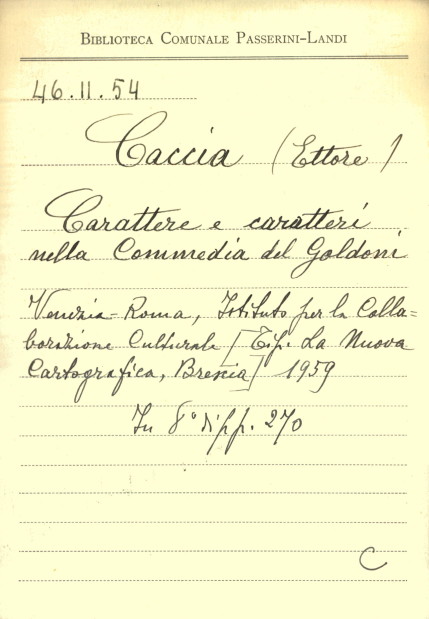 BIBLIOTECA COMUNALE PASSERINI-LANDI
46.II.54
Caccia (Ettore)
Carattere e caratteri
nella Commedia del Goldoni
Venezia-Roma, Istituto per la Colla=
borazione Culturale [Tip. La Nuova
Cartografica, Brescia] 1959
In 8° di pp. 270
C